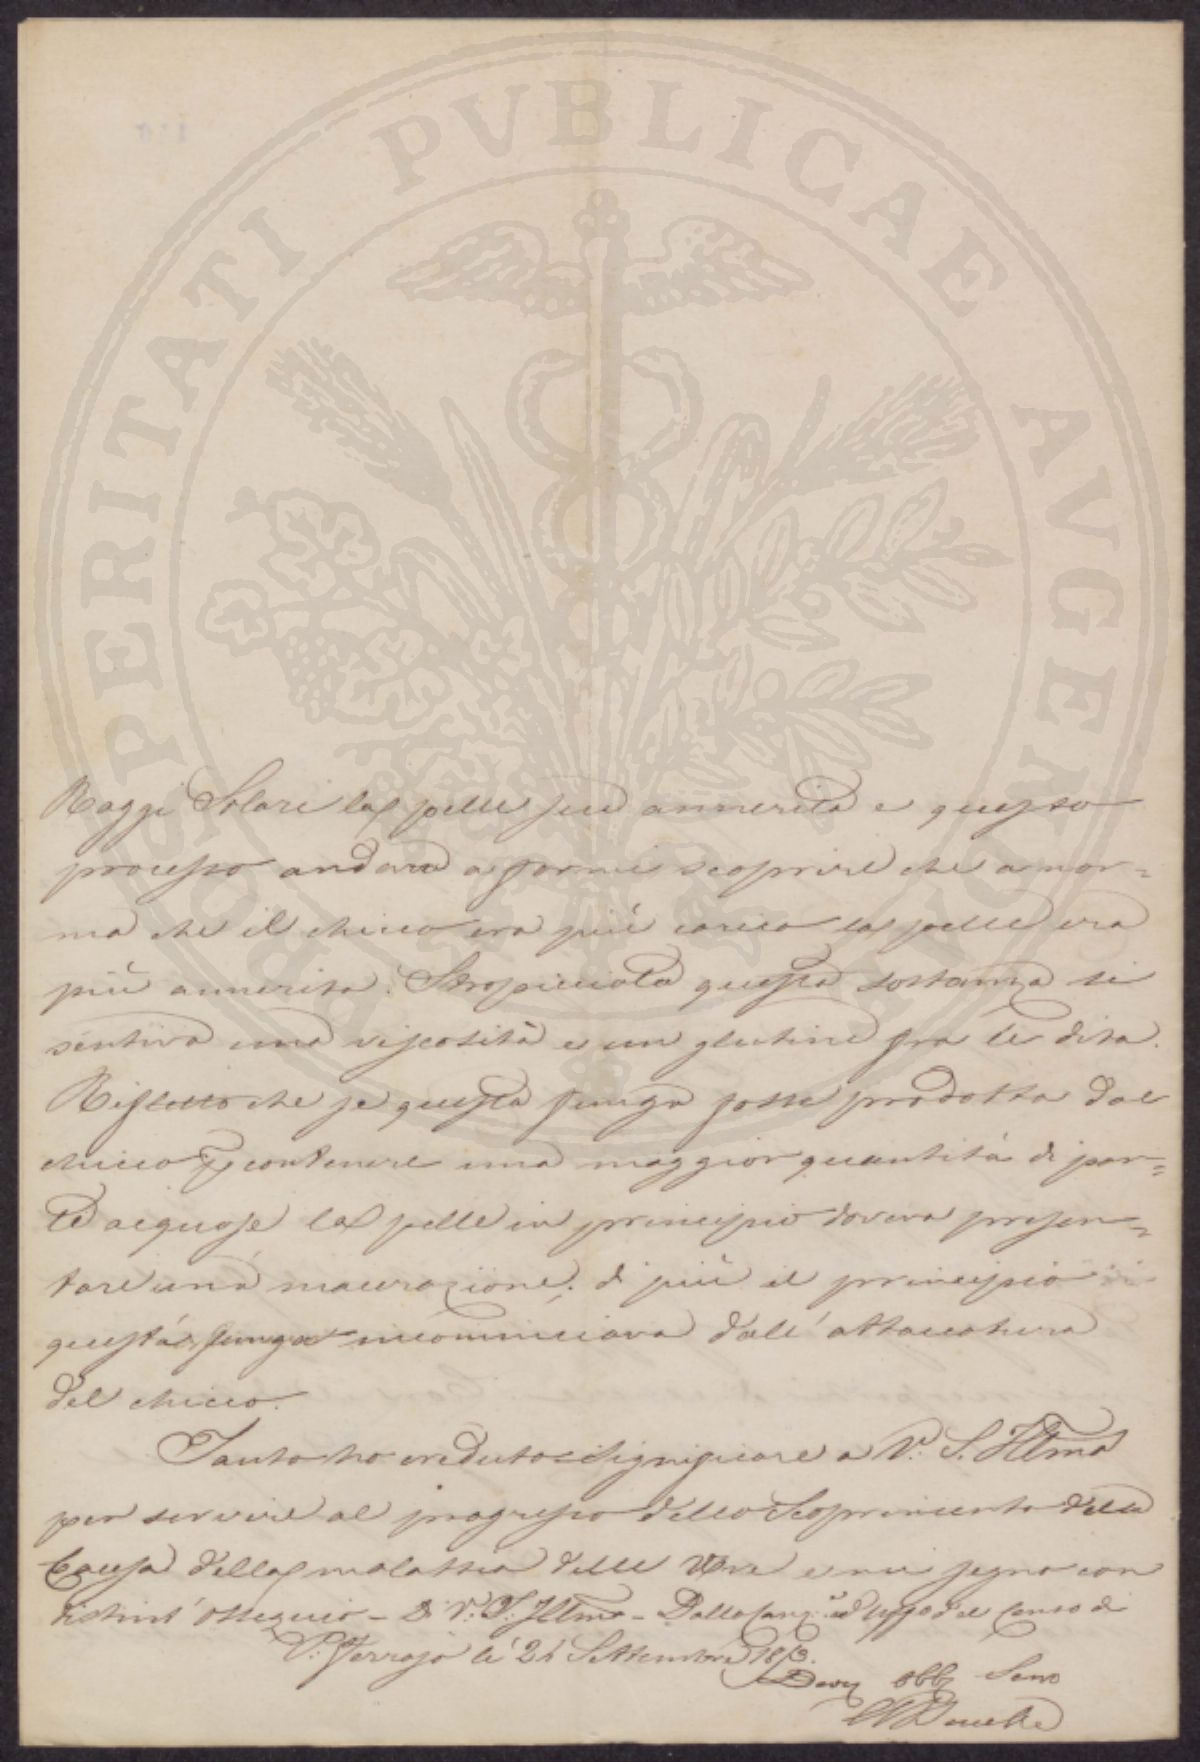 PROSPERITATI PVBLICAE AVGENDAE
Raggi Solari la pelle fu annerita e questo
processo andava a farmi scoprire che a nor=
ma che il chicco era più carico la pelle era
più annerita. Stropicciata questa sostanza si
sentiva una viscosità e un glutine fra le dita.
Rifletto che se questa funga fosse prodotta dal
chicco contenere una maggior quantità di par=
ti acquose la pelle in principio doveva presen=
tare una macerazione; di più il principio di
questa funga incominciava dall'attaccatura
del chicco.
Tanto ho creduto significare a V. S. Illma
per servire al progresso dello Scoprimento della
Causa della malattia delle Uve e mi segno con
distint'ossequio - Di V. S. Illma - Dalla Canc. ed Uffo del Censo di
P. Ferrajo li 21 Settembre
Devo obbo Servo